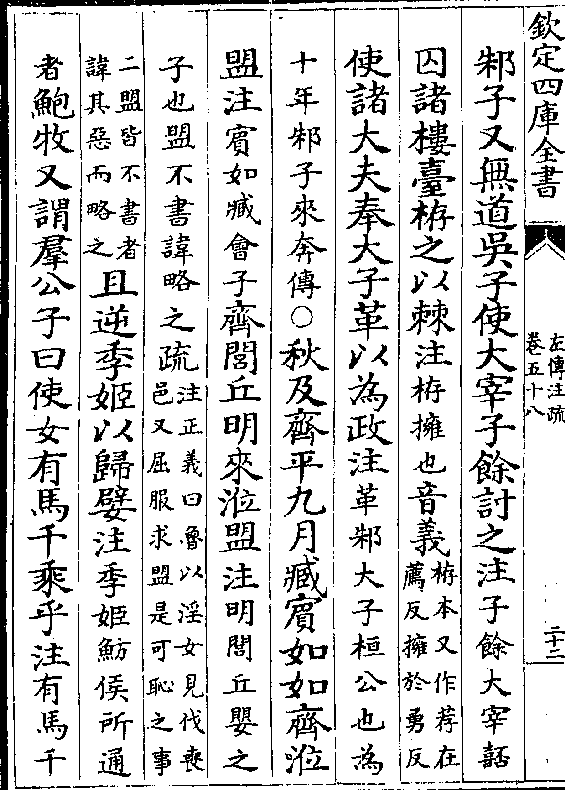 欽定四庫全書
左傳注疏
卷五十八
二十二
邾子又無道吳子使大宰子餘討之注子餘大宰嚭
囚諸樓臺栫之以棘注栫擁也音義栫本又作荐在
薦反擁於勇反
使諸大夫奉大子革以為政注革邾大子桓公也為
十年邾子來奔傳○秋及齊平九月臧賓如如齊涖
盟注賓如臧會子齊閭丘明來涖盟注明閭丘嬰之
子也盟不書諱略之疏注正義曰魯以淫女見伐喪
邑又屈服求盟是可恥之事
二盟皆不書者
諱其惡而略之且逆季姬以歸嬖注季姬魴侯所通
者鮑牧又謂羣公子曰使女有馬千乘乎注有馬千